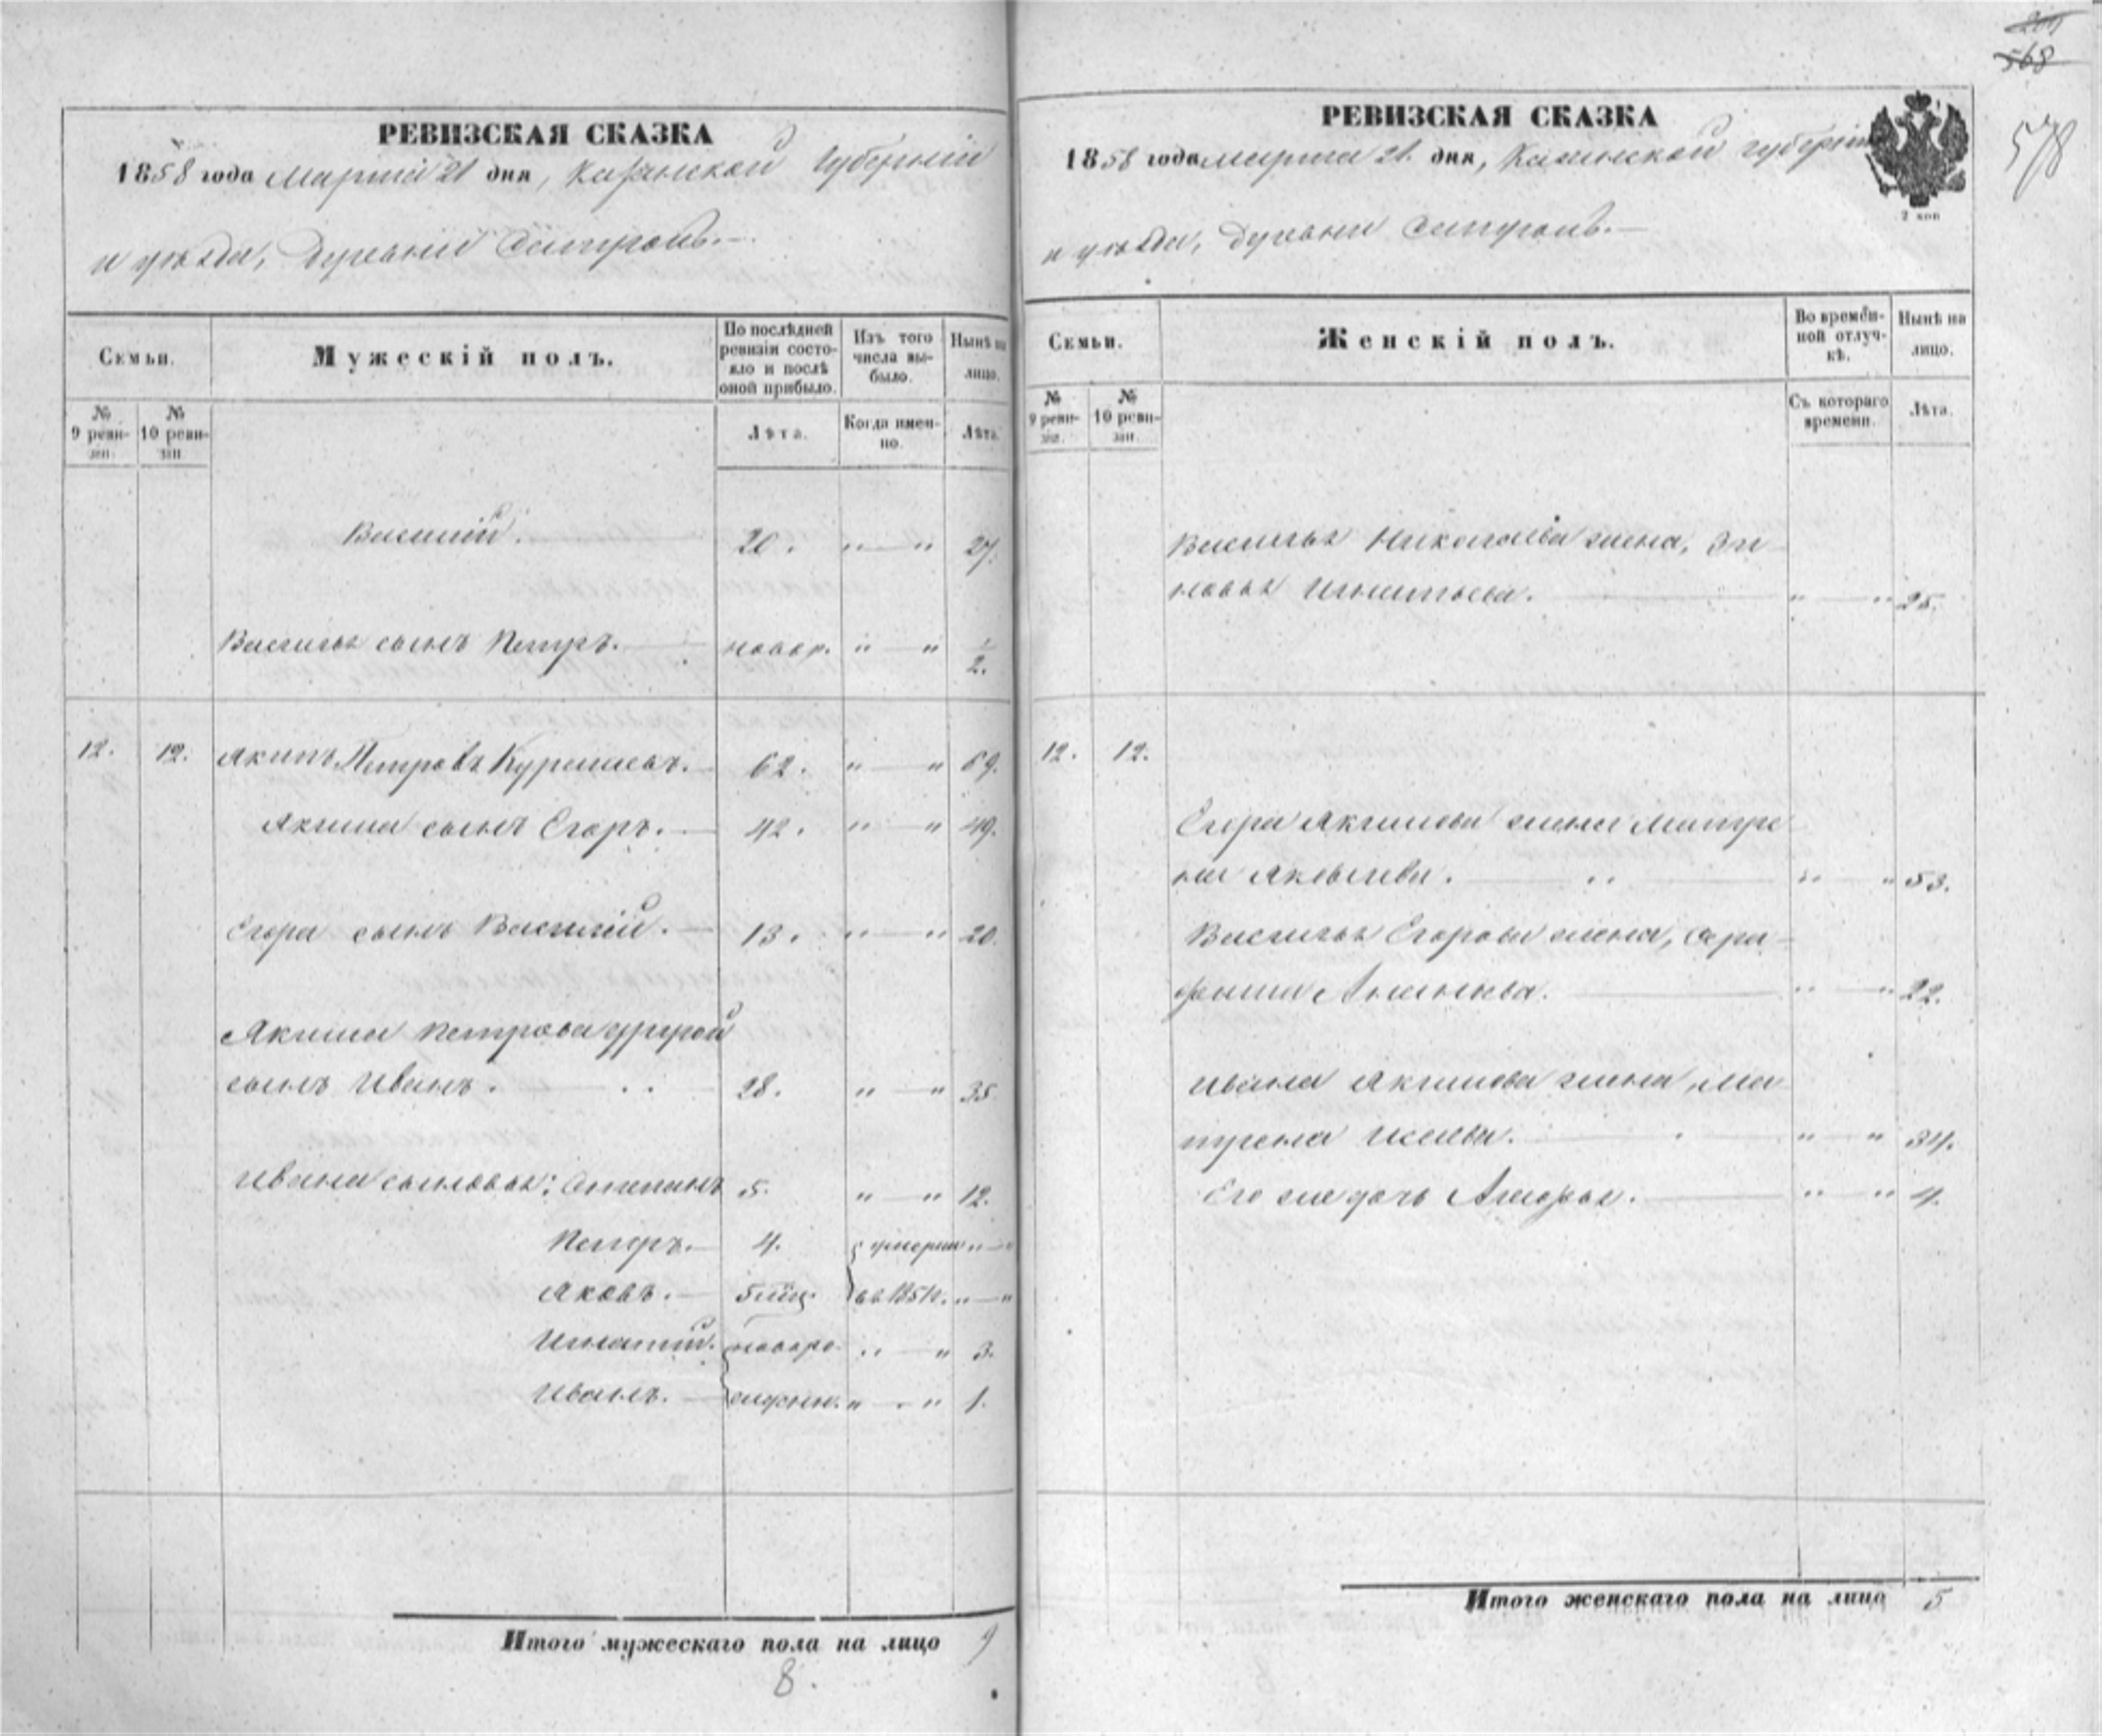 РЕВИЗСКАЯ СКАЗКА
1858 года Марта 21 дня, Казанской Губернии
и уѣзда, Деревни
Семьи.
Мужескій полъ.
По послѣдней ревизіи состояло и послѣ оной прибыло.
Изъ того числа выбыло.
Нынѣ на лицо.
№ 9 ревизіи.
№ 10 ревизіи
Лѣта.
Когда именно.
Лѣта.
Василій. 20. " — " 27.
Василья сынъ Петръ. новор. " — " 1/2.
12. 12. Акимъ Петровъ 62. " — " 69.
Акима сынъ Егоръ. 42. " — " 49.
Егора сынъ Василій. 13. " — " 20.
Акима Петрова другой
сынъ Иванъ. 28. " — " 35
Ивана сыновья: Степанъ 5. " — " 12.
Петръ. 4. умерли " — "
Яковъ. 5 мѣц. въ 1851. " — "
Игнатій. новоро- " — " 3.
жденн.
Иванъ. " — " 1.
Итого мужескаго пола на лицо 9
8.
568
578
РЕВИЗСКАЯ СКАЗКА
1858 года марта 21 дня, Казанской губерніи
2 коп
и уѣзда, Деревни
Семьи.
Женскій полъ.
Во временной отлучкѣ.
Нынѣ на лицо.
№ 9 ревизіи.
№ 10 ревизіи
Съ котораго времени.
Лѣта.
Василья Николаева жена, Зи-
новья Игнатьева. " — " 25.
12. 12.
Егора Акимова жена Матре-
на Яковлева. " — " 53.
Василья Егорова жена, Сера-
фима Ананьева. " — " 22.
Ивана Акимова жена, Ма-
трена Исаева. " — " 34.
Его же дочь " — " 4.
Итого женскаго пола на лицо 5